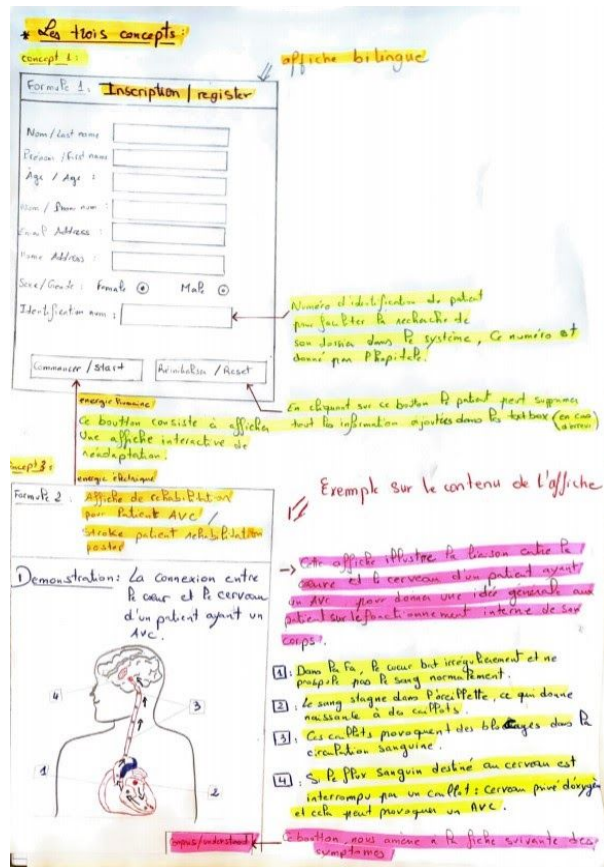 * Les trois concepts :
concept 1 :
affiche bilingue
Formule 1 : Inscription / register
Nom / Last name
Prénom / First name
Âge / Age :
Num / Phone num :
Email Address :
Home Address :
Sexe / Gende : Female Male
Identification num :
Numéro d'identification du patient
pour faciliter la recherche de
son dossier dans le système, Ce numéro est
donné par l'hopitale.
Commencer / Start
Réinitialiser / Reset
energie humaine
En cliquant sur ce bouton le patient peut supprimer
tout les information ajoutées dans les textbox (en cas d'erreur)
Ce boutton consiste à afficher
Une affiche interactive de
réadaptation.
concept 3 :
energie éléctrique
Formule 2 : Affiche de rehabilitation
pour Patient AVC /
Stroke patient rehabilitation
poster
Exemple sur le contenu de l'affiche
Demonstration : La connexion entre
le cœur et le cerveau
d'un patient ayant un
AVC.
→ Cette affiche illustre la liaison entre le
cœure et le cerveau d'un patient ayant
un AVC pour donner une idée générale aux
patient sur le fonctionnement interne de son
corps.
1 : Dans la Fa, le cœur bat irregulièrement et ne
propulse pas le sang normalement.
2 : Le sang stagne dans l'oreillette, ce qui donne
naissante à des caillots.
3 : Ces caillots provoquent des blocages dans la
circulation sanguine.
4 : Si le flux sanguin destiné au cerveau est
interrompu par un caillot : cerveau privé d'oxygène
et cela peut provoquer un AVC.
4
3
1
2
Compris/understood
Ce boutton, nous amène a la fiche suivante des
symptomes